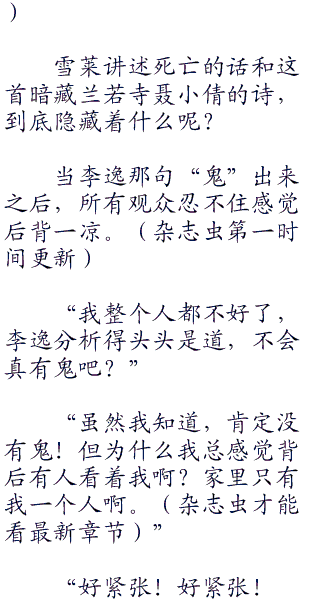 ）
雪菜讲述死亡的话和这
首暗藏兰若寺聂小倩的诗，
到底隐藏着什么呢？
当李逸那句“鬼”出来
之后，所有观众忍不住感觉
后背一凉。（杂志虫第一时
间更新）
“我整个人都不好了，
李逸分析得头头是道，不会
真有鬼吧？”
“虽然我知道，肯定没
有鬼！但为什么我总感觉背
后有人看着我啊？家里只有
我一个人啊。（杂志虫才能
看最新章节）”
“好紧张！好紧张！